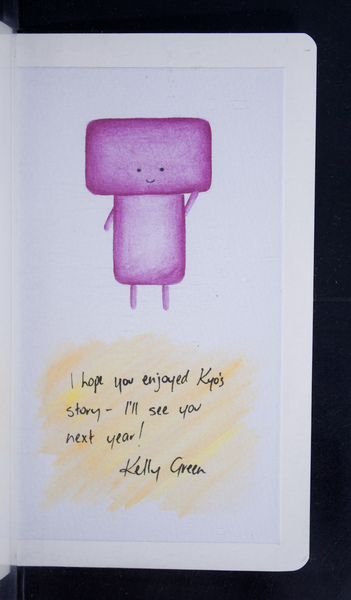 I hope you enjoyed Kyo's
story - I'll see you
next year!
Kelly Green